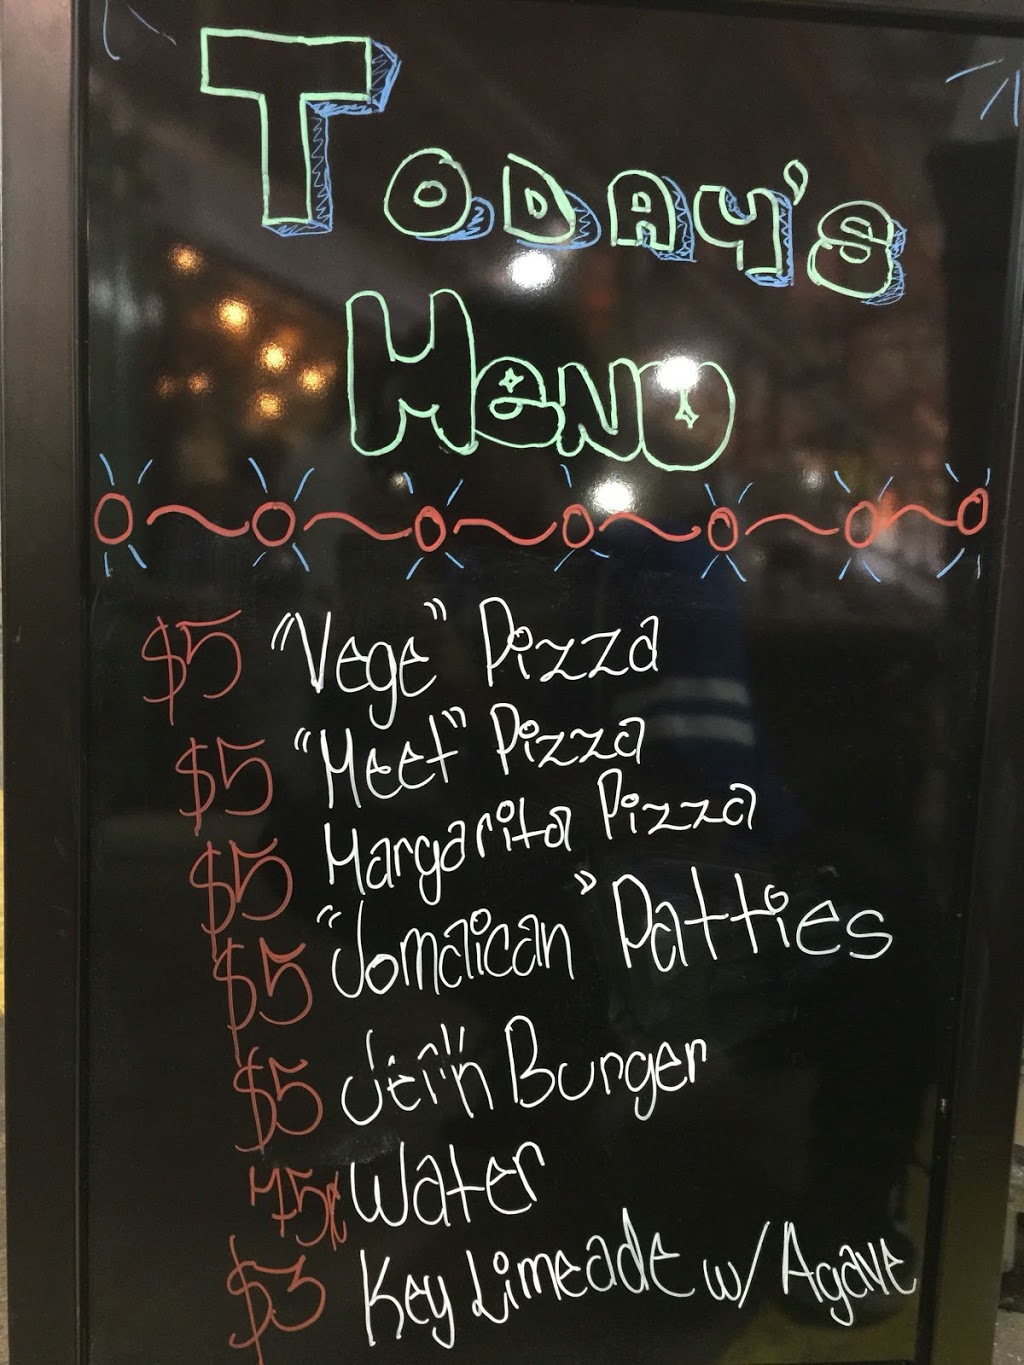 Today's
Menu
$5 "Vege" Pizza
$5 "Meet" Pizza
$5 Margarita Pizza
$5 "Jamaican" Patties
$5 Jerk Burger
75¢ Water
$3 Key Limeade w/ Agave